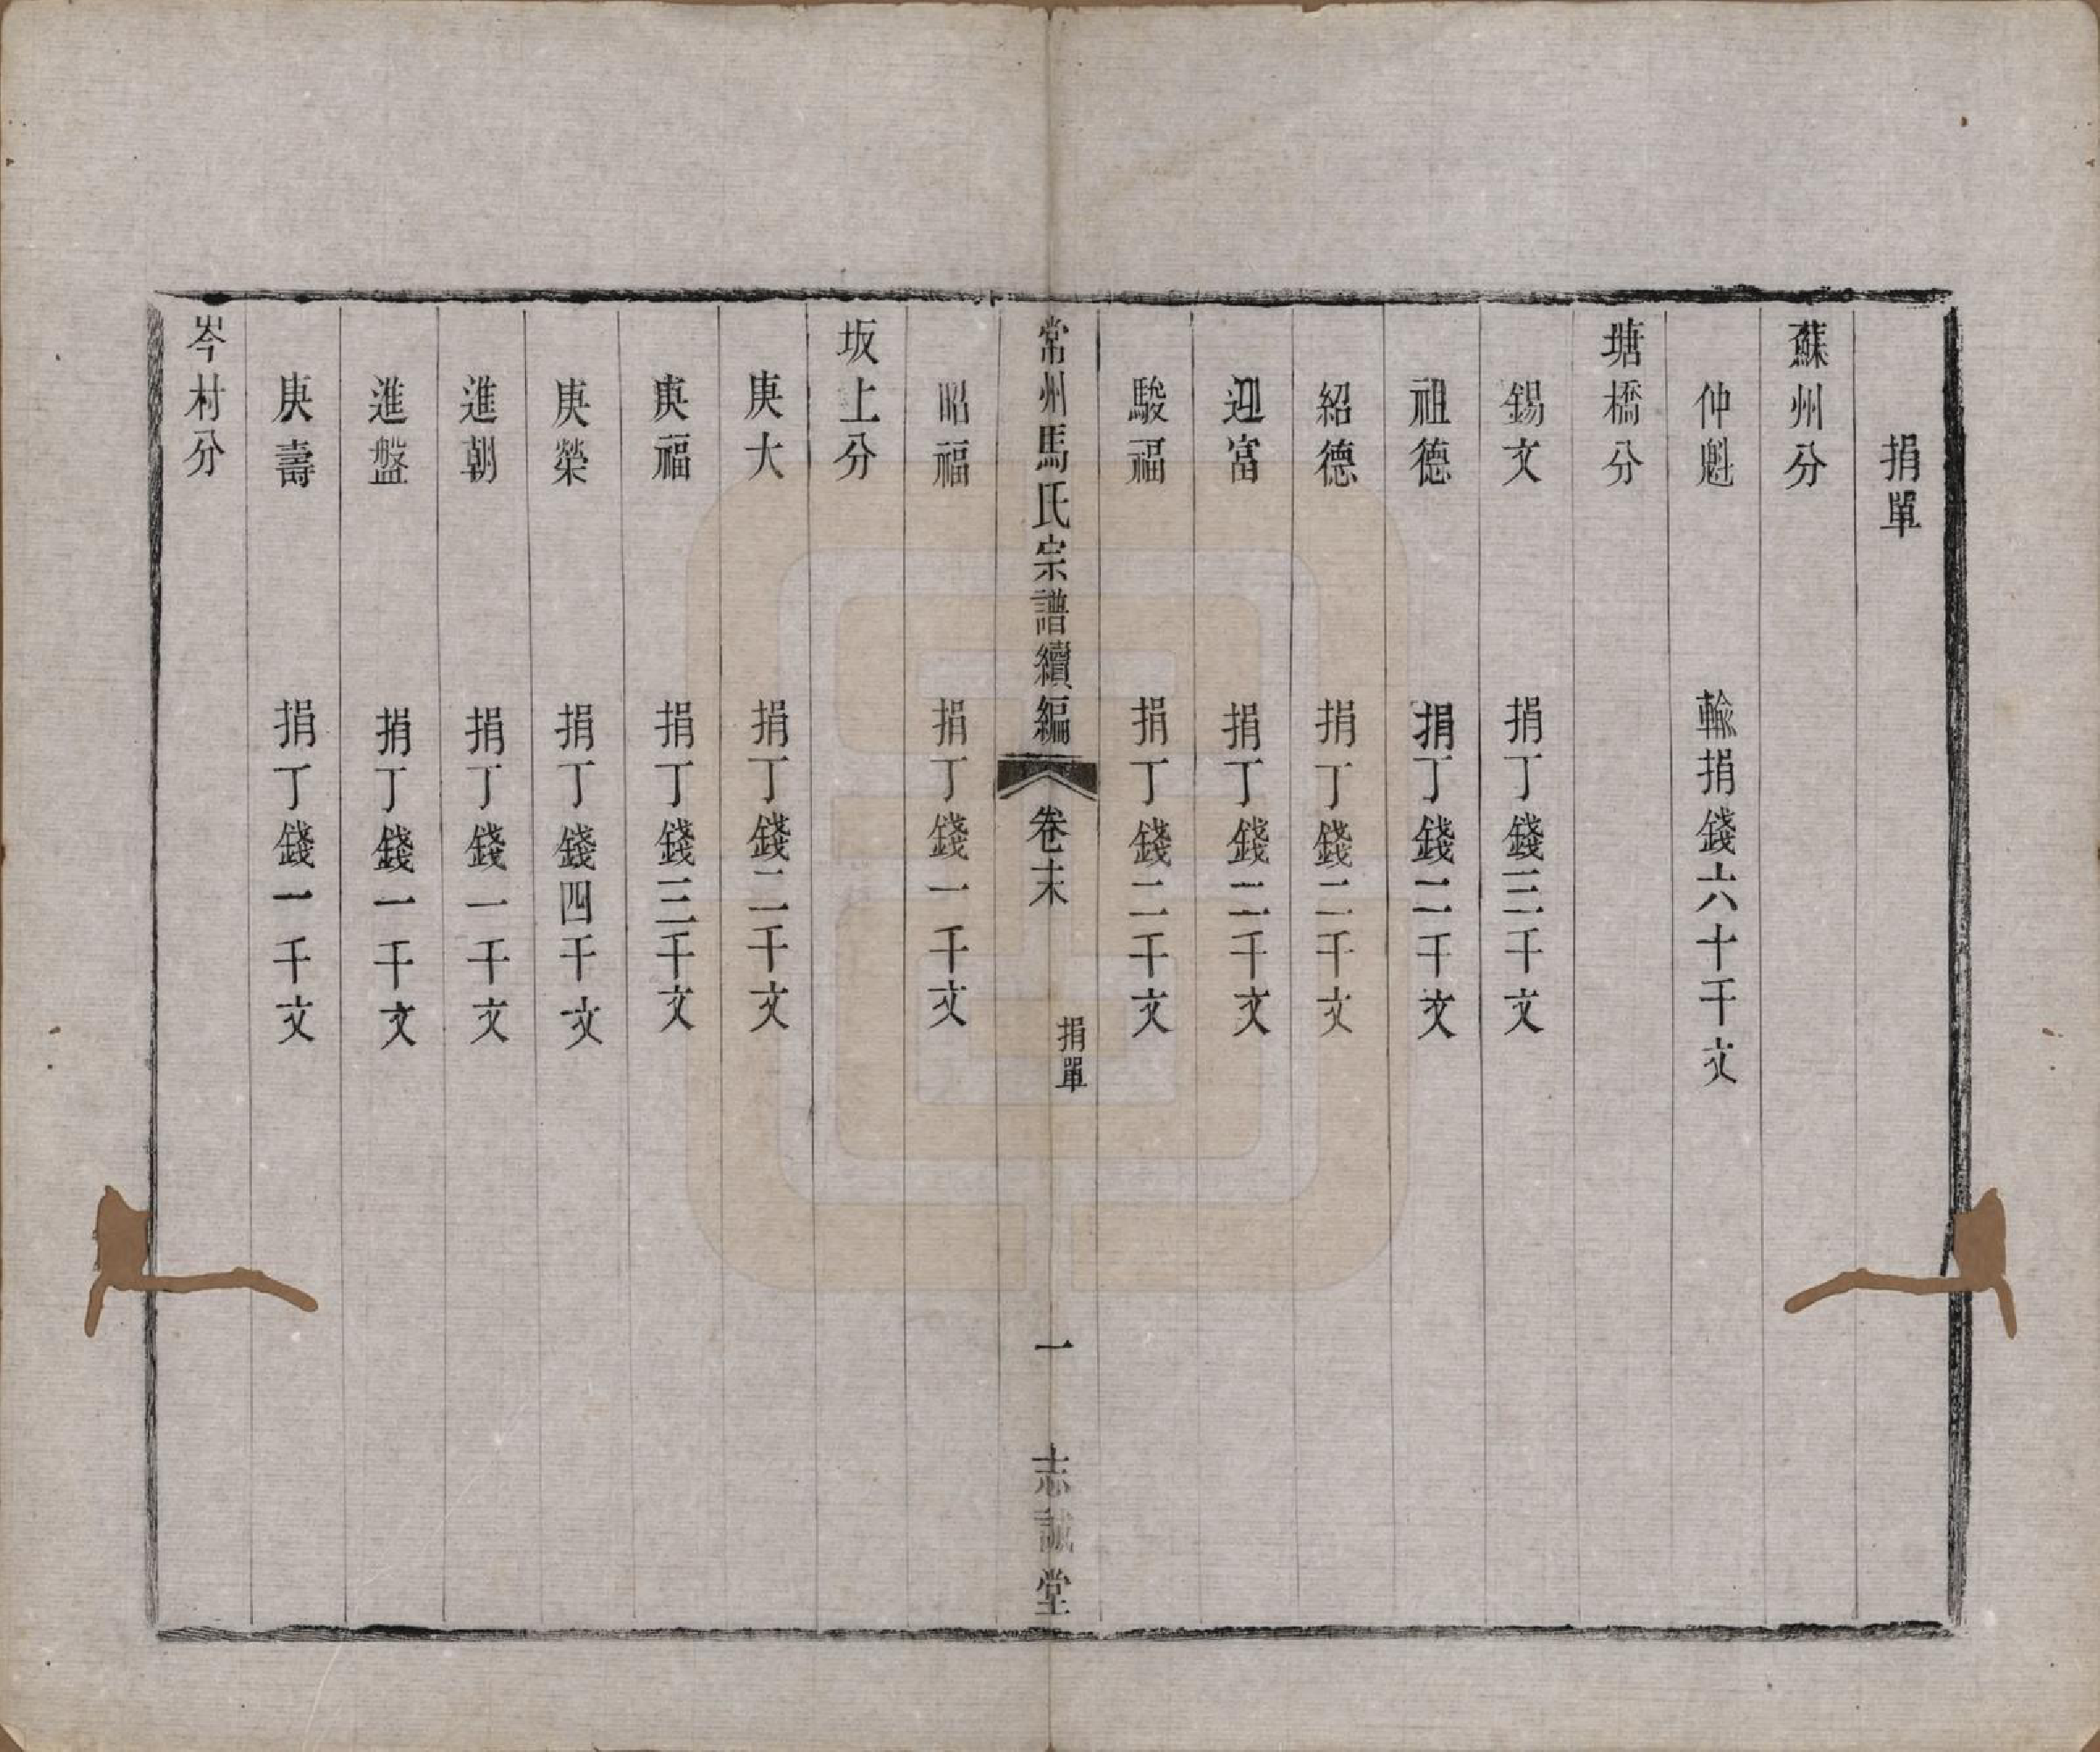 捐單
蘇州分
仲魁 輸捐錢六十千文
塘橋分
錫文 捐丁錢三千文
祖德 捐丁錢二千文
紹德 捐丁錢二千文
迎富 捐丁錢二千文
駿福 捐丁錢二千文
常州馬氏宗譜續編 卷末 捐單 一 志誠堂
昭福 捐丁錢一千文
坂上分
庚大 捐丁錢二千文
庚福 捐丁錢三千文
庚榮 捐丁錢四千文
進朝 捐丁錢一千文
進盤 捐丁錢一千文
庚壽 捐丁錢一千文
岑村分